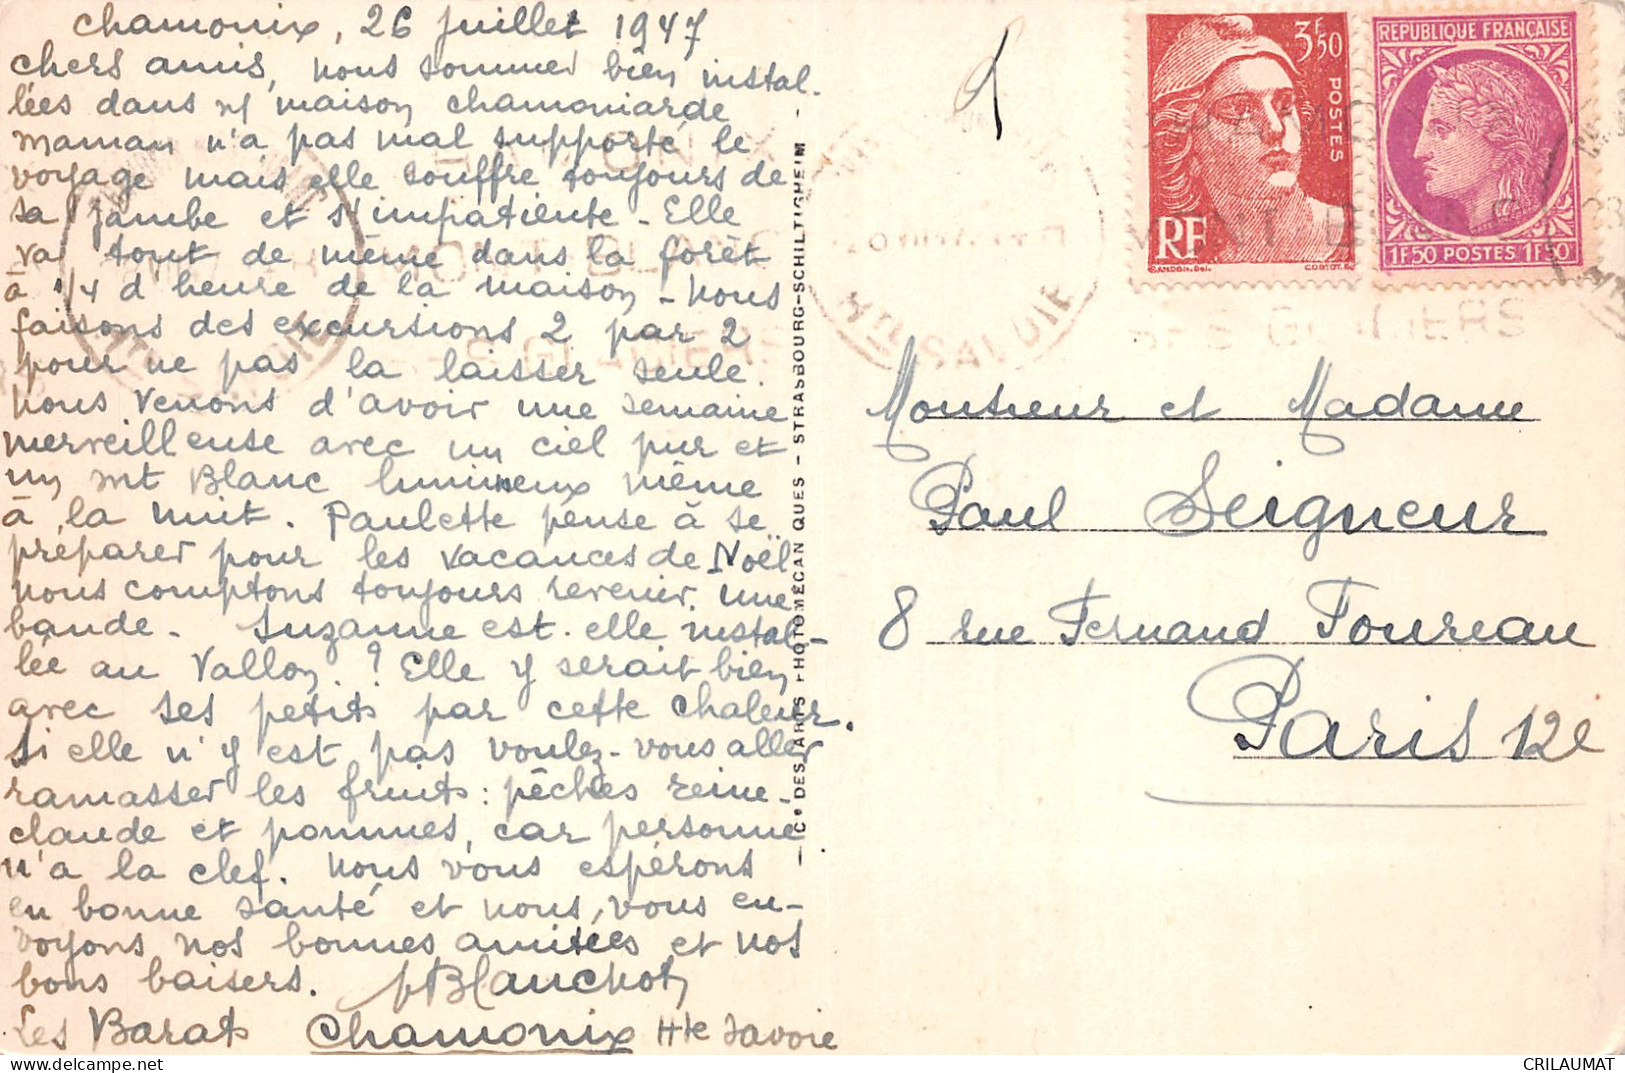 Chamonix, 26 juillet 1947
Chers amis, nous sommes bien instal-
lées dans n/ maison chamoniarde
Maman n'a pas mal supporté le
voyage mais elle souffre toujours de
sa jambe et s'impatiente - Elle
va tout de même dans la forêt
à 1/4 d'heure de la maison - Nous
faisons des excursions 2 par 2
pour ne pas la laisser seule.
Nous venons d'avoir une semaine
merveilleuse avec un ciel pur et
un Mt Blanc lumineux même
à la nuit. Paulette pense à se
préparer pour les vacances de Noël
nous comptons toujours revenir une
bande. Suzanne est-elle instal-
lée au Vallon ? Elle y serait bien
avec ses petits par cette chaleur.
Si elle n'y est pas voulez-vous aller
ramasser les fruits : pêches reine-
claude et pommes, car personne
n'a la clef. Nous vous espérons
en bonne santé et nous vous en-
voyons nos bonnes amitiées et nos
bons baisers. Blanchot
Les Barats Chamonix Hte Savoie
Cº DES ARTS PHOTOMÉCANIQUES - STRASBOURG-SCHILTIGHEIM -
3F50
POSTES
RF
GANDON, Del.
RÉPUBLIQUE FRANÇAISE
1F50 POSTES 1F50
Monsieur et Madame
Paul Seigneur
8 rue Fernand Foureau
Paris 12e
CRILAUMAT